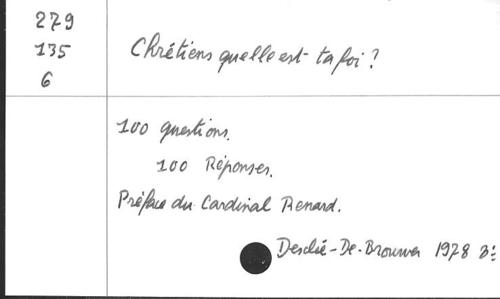 279
135
6
Chrétiens quelle est ta foi ?
100 questions.
100 Réponses.
Préface du Cardinal Renard.
Desclée-De-Brouwer 1978